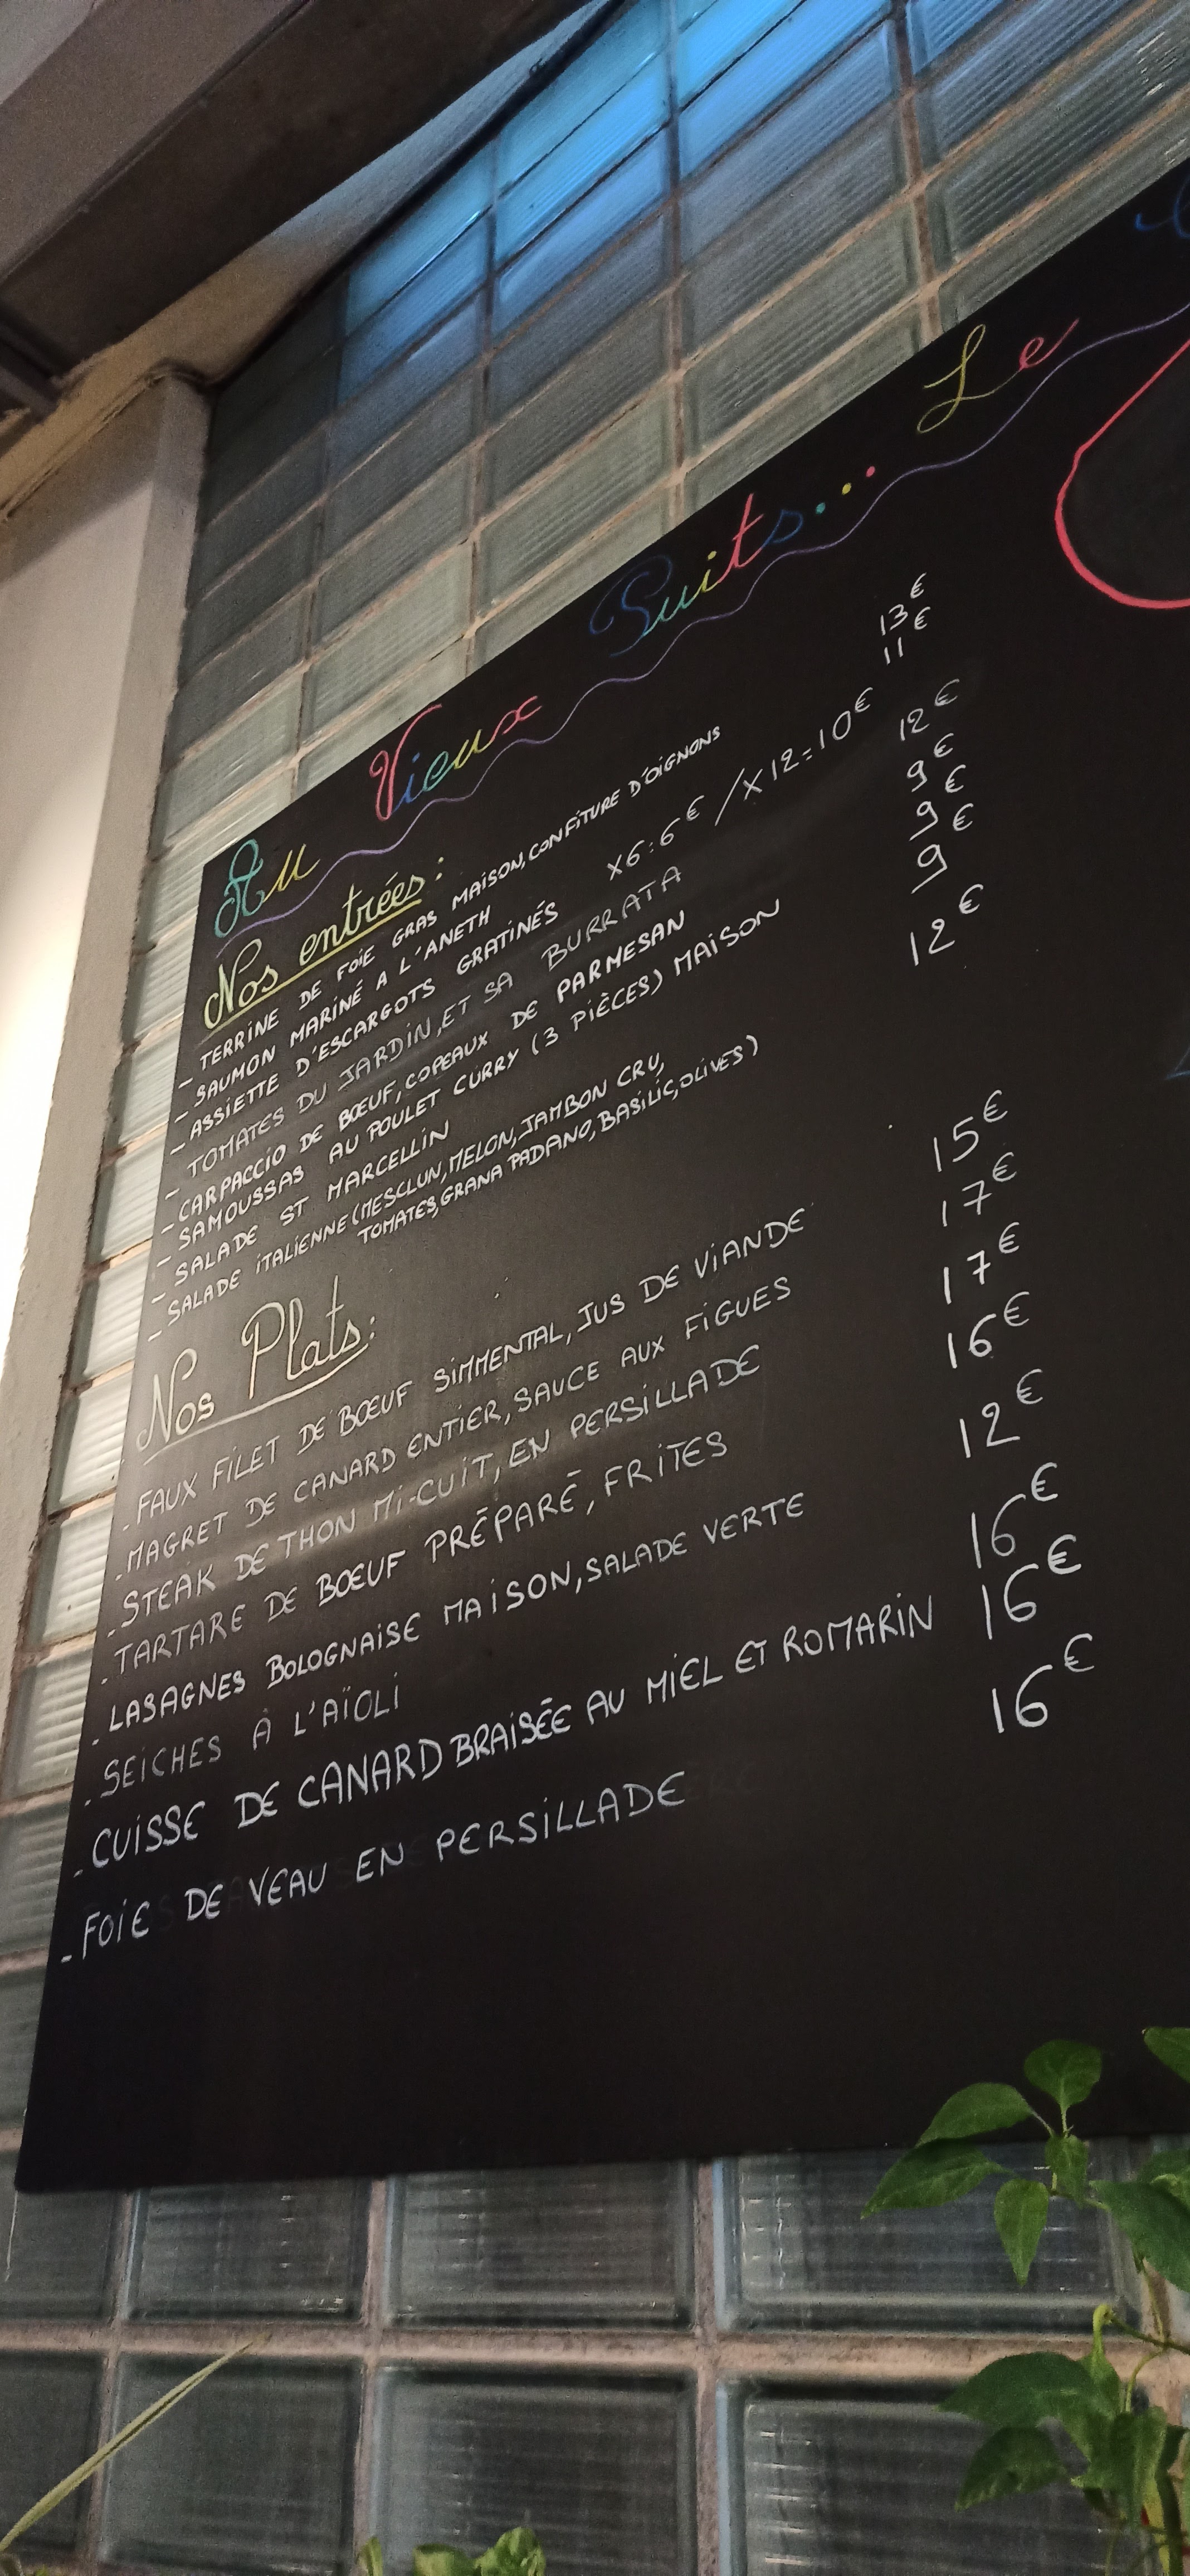 Au Vieux Puits... Le
Nos entrées:
- TERRINE DE FOIE GRAS MAISON, CONFITURE D'OIGNONS 13€
- SAUMON MARINÉ A L'ANETH 11€
- ASSIETTE D'ESCARGOTS GRATINÉS X6:6€ / X12=10€
- TOMATES DU JARDIN, ET SA BURRATA 12€
- CARPACCIO DE BŒUF, COPEAUX DE PARMESAN 9€
- SAMOUSSAS AU POULET CURRY (3 PIÈCES) MAISON 9€
- SALADE ST MARCELLIN 9€
- SALADE ITALIENNE (MESCLUN, MELON, JAMBON CRU, 12€
TOMATES, GRANA PADANO, BASILIC, OLIVES)
Nos Plats:
- FAUX FILET DE BŒUF SIMMENTAL, JUS DE VIANDE 15€
- MAGRET DE CANARD ENTIER, SAUCE AUX FIGUES 17€
- STEAK DE THON MI-CUIT, EN PERSILLADE 17€
- TARTARE DE BŒUF PRÉPARÉ, FRITES 16€
- LASAGNES BOLOGNAISE MAISON, SALADE VERTE 12€
- SEICHES À L'AÏOLI 16€
- CUISSE DE CANARD BRAISÉE AU MIEL ET ROMARIN 16€
- FOIE DE VEAU EN PERSILLADE 16€